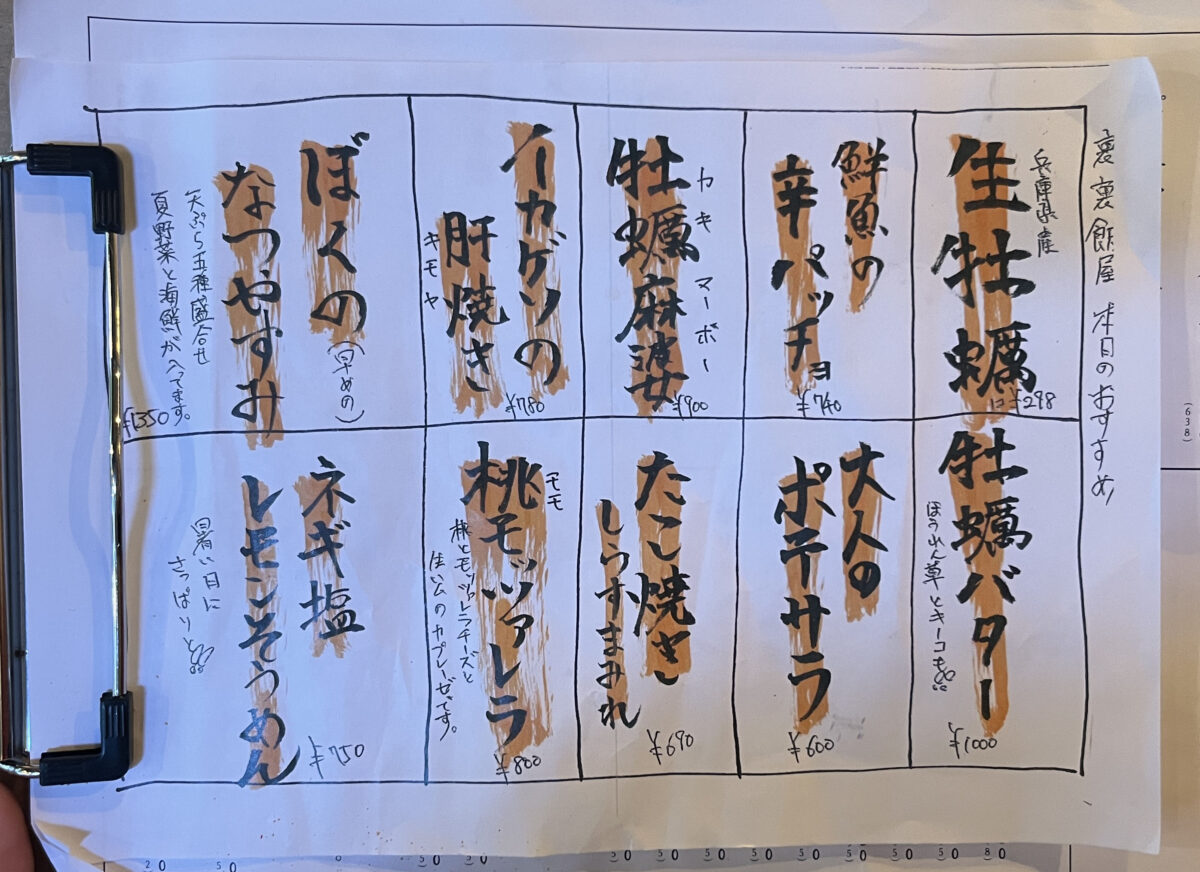 裏裏飯屋 本日のおすすめ
兵庫県産
生牡蠣
1コ ¥298
鮮魚の
辛パッチョ
¥740
カキ マーボー
牡蠣麻婆
¥900
イカゲソの
肝焼き
キモヤ
¥780
ぼくの
(早めの)
なつやすみ
天ぷら五種盛合せ
夏野菜と海鮮が入てます。
¥1350
牡蠣バター
ほうれん草と
¥1000
大人の
ポテサラ
¥600
たこ焼き
しらすまみれ
¥690
モモ
桃モッツァレラ
桃とモッツァレラチーズと
生ハムのカプレーゼです。
¥800
ネギ塩
レモンそうめん
¥750
暑い日に
さっぱりと
(638)
20
50
0
50
50
50
50
50
50
50
50
50
80